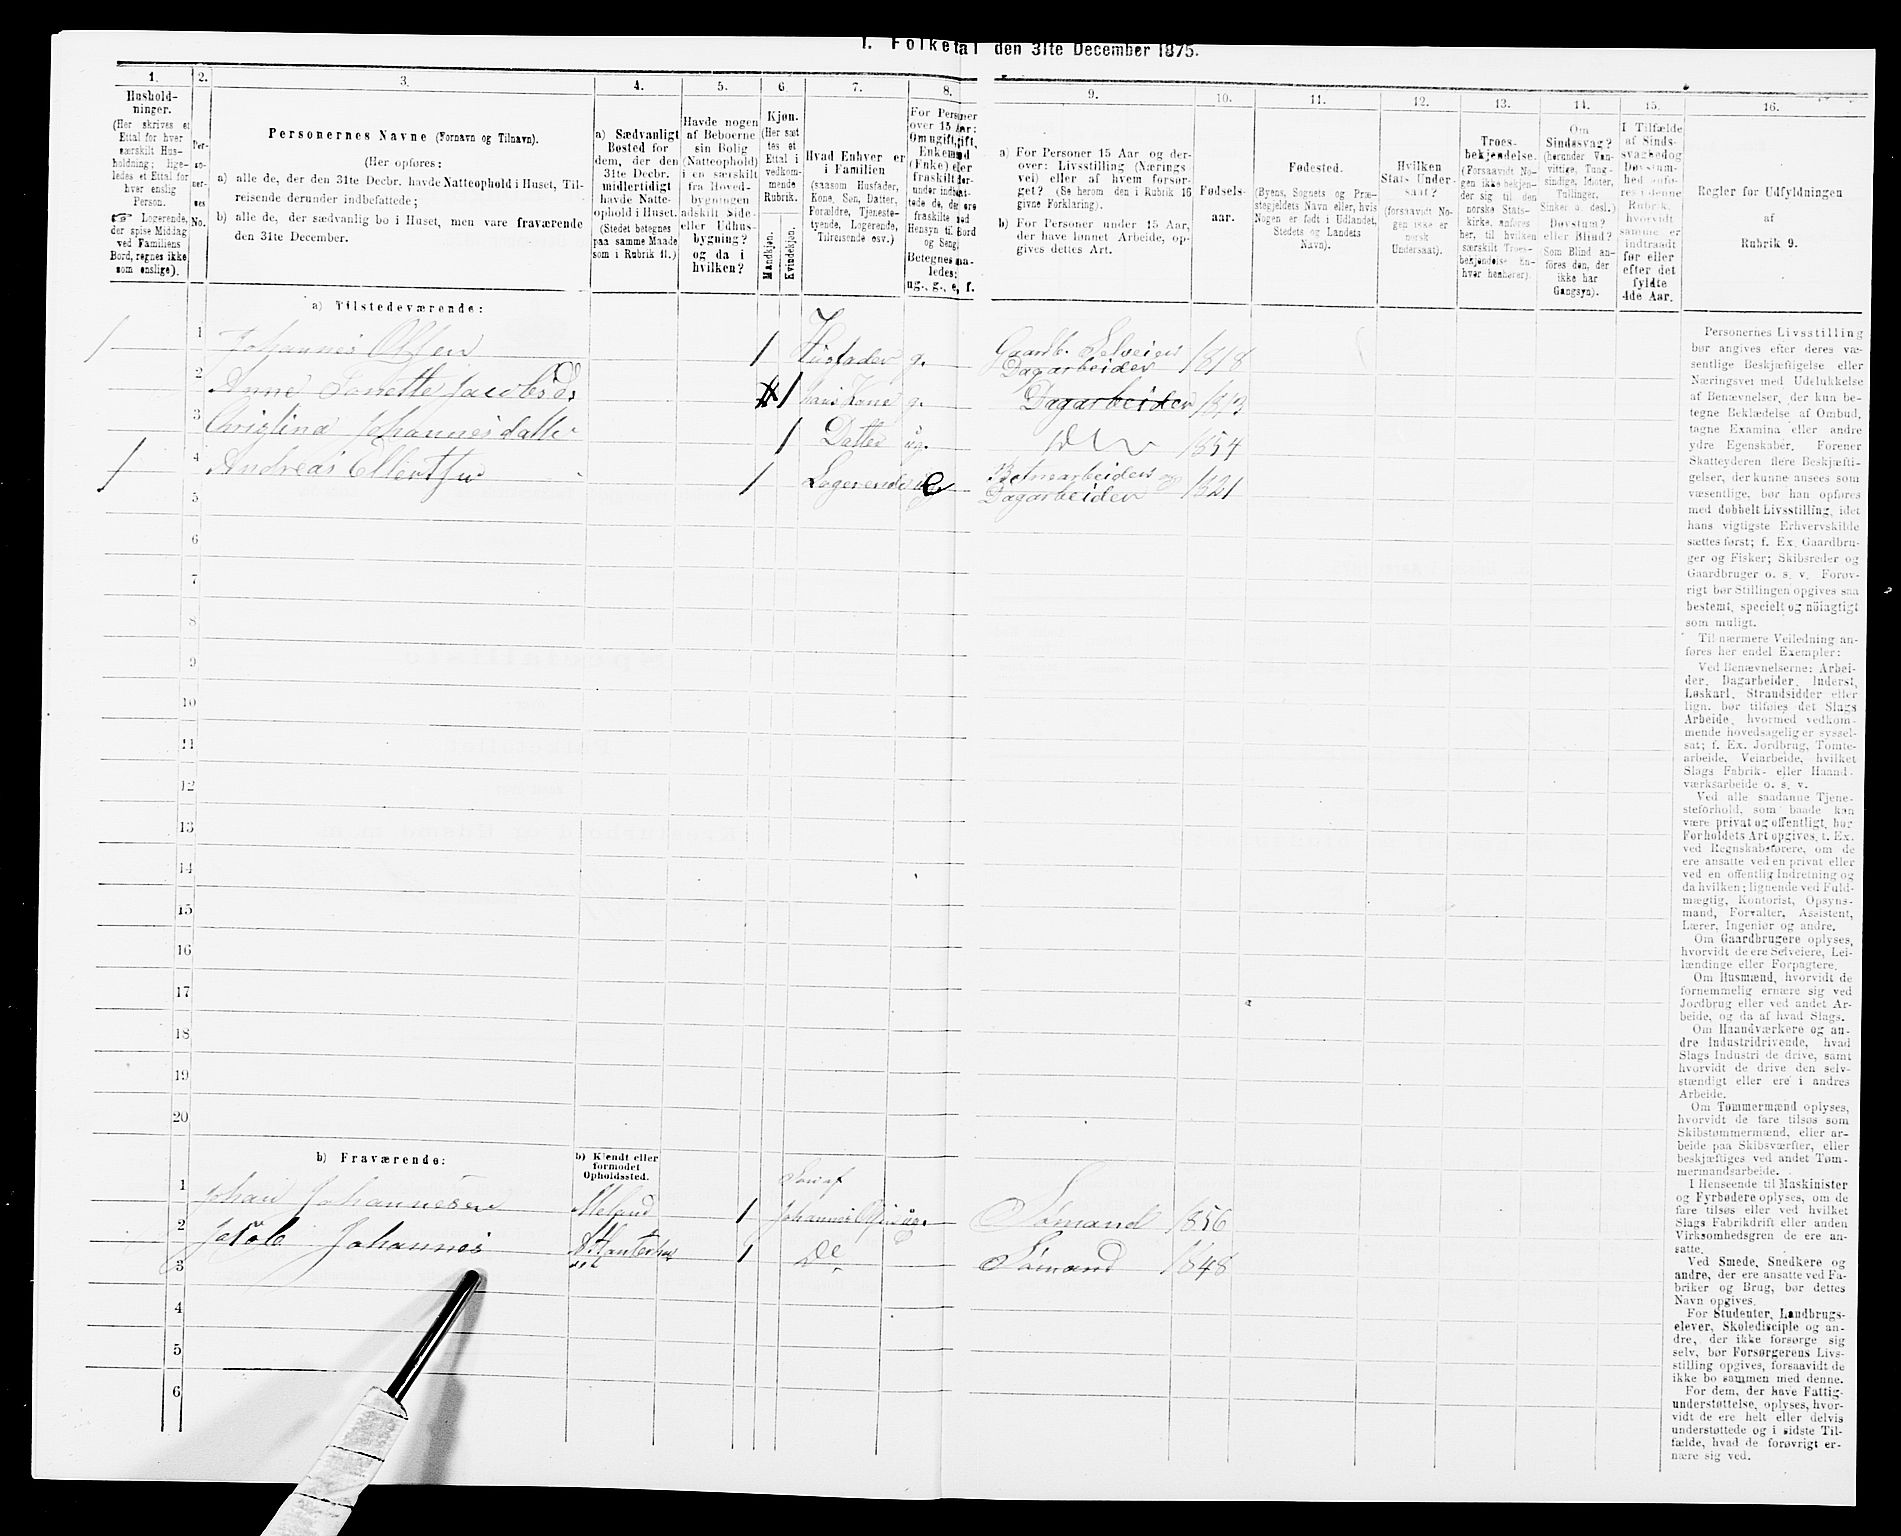 1. Folketal den 31te December 1875.
1. 2. 3. 4. 5. 6 7. 8. 9. 10. 11. 12. 13. 14. 15. 16.
Hushold-
ninger.
(Her skrives et
Ettal for hver
særskilt Hus-
holdning; lige-
ledes et Ettal for
hver enslig
Person.
☞ Logerende,
der spise Middag
ved Familiens
Bord, regnes ikke
som enslige).
Per-
so-
ner-
nes
No.
Personernes Navne (Fornavn og Tilnavn).
(Her opføres:
a) alle de, der den 31te Decbr. havde Natteophold i Huset, Til-
reisende derunder indbefattede;
b) alle de, der sædvanlig bo i Huset, men vare fraværende
den 31te December.
a) Sædvanligt
Bosted for
dem, der den
31te Decbr.
midlertidigt
havde Natte-
ophold i Huset.
(Stedet betegnes
paa samme Maade
som i Rubrik 11.)
Havde nogen
af Beboerne
sin Bolig
(Natteophold)
i en særskilt
fra Hoved-
bygningen
adskilt Side-
eller Udhus-
bygning?
og da i
hvilken?
Kjøn.
(Her sæt
tes et
Ettal i
vedkom-
mende
Rubrik.
Mandkjøn.
Kvindekjøn.
Hvad Enhver er
i Familien
(saasom Husfader,
Kone, Søn, Datter,
Forældre, Tjeneste-
tyende, Logerende,
Tilreisende osv.)
For Personer
over 15 Aar:
Om ugift, gift,
Enkemand
(Enke) eller
fraskilt (her-
under indbefat-
tede de, der ere
fraskilte ved
Hensyn til Bord
og Seng)
Betegnes saa-
ledes:
ug., g., e, f.
a) For Personer 15 Aar og der-
over: Livsstilling (Nærings-
vei) eller af hvem forsør-
get? (Se herom den i Rubrik 16
givne Forklaring).
b) For Personer under 15 Aar,
der have lønnet Arbeide, op-
gives dettes Art.
Fødsels-
aar.
Fødested.
(Byens, Sognets og Præ-
stegjeldets Navn eller, hvis
Nogen er født i Udlandet,
Stedets og Landets
Navn).
Hvilken
Stats Under-
saat?
(forsaavidt No-
gen ikke er
norsk
Undersaat).
Troes-
bekjendelse.
(Forsaavidt No-
gen ikke bekjen-
der sig til den
norske Stats-
kirke, anføres
her, til hvilken
særskilt Troes-
bekjendelse En-
hver henhører).
Om
Sindssvag?
(herunder Van-
vittige, Tung-
sindige, Idioter,
Tullinger,
Sinker o. desl.)
Døvstum?
eller Blind?
(Som Blind an-
føres den, der
ikke har
Gangsyn).
I Tilfælde
af Sinds-
svaghed og
Døvstum-
hed anfø-
res i denne
Rubrik,
hvorvidt
samme er
indtraadt
før eller
efter det
fyldte
4de Aar.
Regler for Udfyldningen
af
Rubrik 9.
a) Tilstedeværende:
1 Johannes Olsen 1 Husfader g. Gaardb. Selveier Dagarbeider 1818
2 Anne Jonette Jacobsd: 1 hans Kone g. Dagarbeider 1813
3 Christina Johannesdatter 1 Datter ug. 1854
4 Andreas 1 Logerende e Dagarbeider 1821
5
6
7
8
9
10
11
12
13
14
15
16
17
18
19
20
b) Fraværende:
b) Kjendt eller
formodet
Opholdssted.
1 Johan Johannesen Meland 1 Søn af Johannes ug. Sømand 1856
2 Jakob Johannes 1 Do Sømand 1848
3
4
5
6
Personernes Livsstilling
bør angives efter deres væ-
sentlige Beskjæftigelse eller
Næringsvei med Udelukkelse
af Benævnelser, der kun be-
tegne Beklædelse af Ombud,
tagne Examina eller andre
ydre Egenskaber. Forener
Skatteyderen flere Beskjæfti-
gelser, der kunne ansees som
væsentlige, bør han opføres
med dobbelt Livsstilling, idet
hans vigtigste Erhvervskilde
sættes først; f. Ex. Gaardbru-
ger og Fisker; Skibsreder og
Gaardbruger o. s. v. Forøv-
rigt bør Stillingen opgives saa
bestemt, specielt og nöiagtigt
som muligt.
Til nærmere Veiledning an-
føres her endel Exempler:
Ved Benævnelserne: Arbei-
der, Dagarbeider, Inderst,
Løskarl, Strandsidder eller
lign. bør tilføies det Slags
Arbeide, hvormed vedkom-
mende hovedsagelig er syssel-
sat; f. Ex. Jordbrug, Tomte-
arbeide, Veiarbeide, hvilket
Slags Fabrik- eller Haand-
værksarbeide o. s. v.
Ved alle saadanne Tjene-
steforhold, som baade kan
være privat og offentligt, bør
Forholdets Art opgives, t. Ex.
ved Regnskabsførere, om de
ere ansatte ved en privat eller
ved en offentlig Indretning og
da hvilken; lignende ved Fuld-
mægtig, Kontorist, Opsyns-
mand, Forvalter, Assistent,
Lærer, Ingeniør og andre.
Om Gaardbrugere oplyses,
hvorvidt de ere Selveiere, Lei-
lændinge eller Forpagtere.
Om Husmænd, hvorvidt de
fornemmelig ernære sig ved
Jordbrug eller ved andet Ar-
beide, og da af hvad Slags.
Om Haandværkere og an-
dre Industridrivende, hvad
Slags Industri de drive, samt
hvorvidt de drive den selv-
stændigt eller ere i andres
Arbeide.
Om Tømmermænd oplyses,
hvorvidt de fare tilsøs som
Skibstømmermænd, eller ar-
beide paa Skibsværfter, eller
beskjæftiges ved andet Tøm-
mermandsarbeide.
I Henseende til Maskinister
og Fyrbødere oplyses, om de
fare tilsøs eller ved hvilket
Slags Fabrikdrift eller anden
Virksomhedsgren de ere an-
satte.
Ved Smede, Snedkere og
andre, der ere ansatte ved Fa-
briker og Brug, bør dettes
Navn opgives.
For Studenter, Landbrugs-
elever, Skoledisciple og an-
dre, der ikke forsørge sig
selv, bør Forsørgerens Livs-
stilling opgives, forsaavidt de
ikke bo sammen med denne.
For dem, der have Fattig-
understøttelse, oplyses, hvor-
vidt de ere helt eller delvis
understøttede og i sidste Til-
fælde, hvad de forøvrigt er-
nære sig ved.